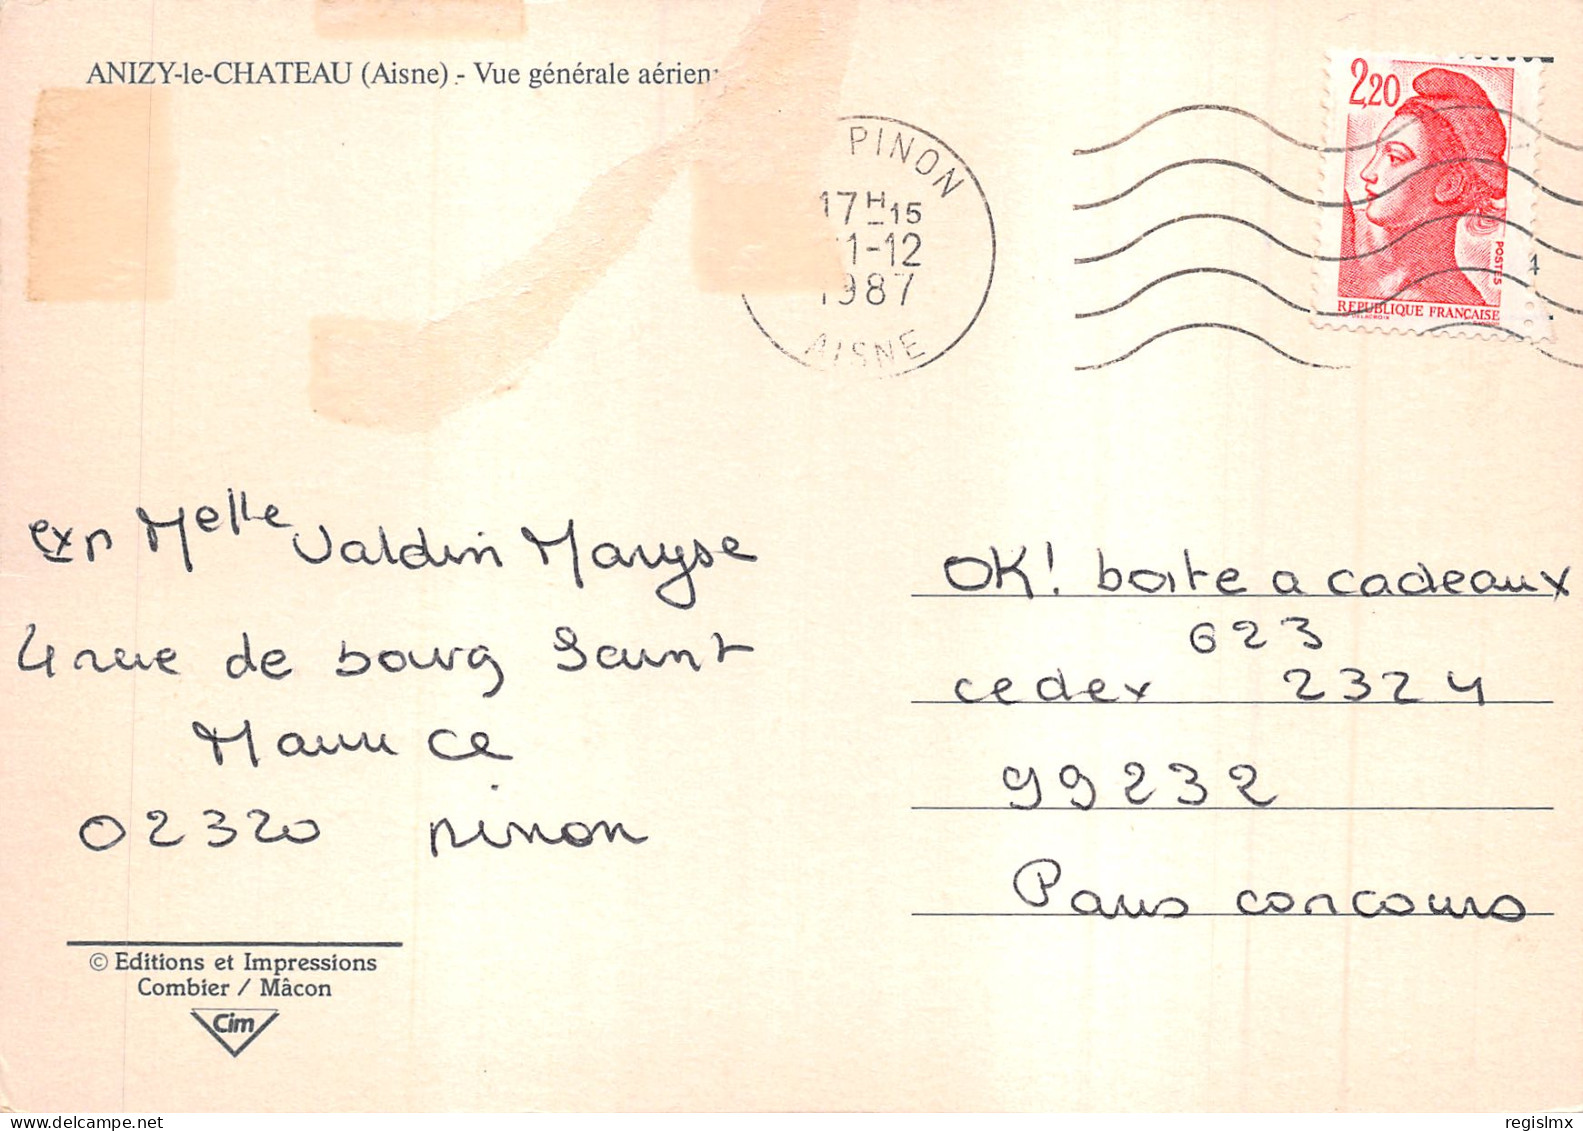 ANIZY-le-CHATEAU (Aisne) - Vue générale aérien
PINON
17H15
1-12
1987
AISNE
2,20
POSTES
REPUBLIQUE FRANÇAISE
DELACROIX
4
exp Melle Valdin Maryse
4 rue de bourg Saint
Maurice
02320 pinon
OK! boite a cadeaux
623
cedex 2324
99232
Paris concours
© Editions et Impressions
Combier / Mâcon
Cim
regislmx